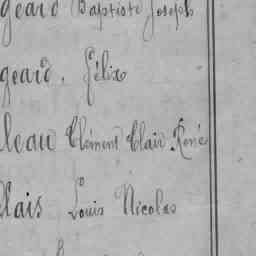 geard Baptiste Joseph
geard, Félix
leau Clément Clair René
lais Louis Nicolas